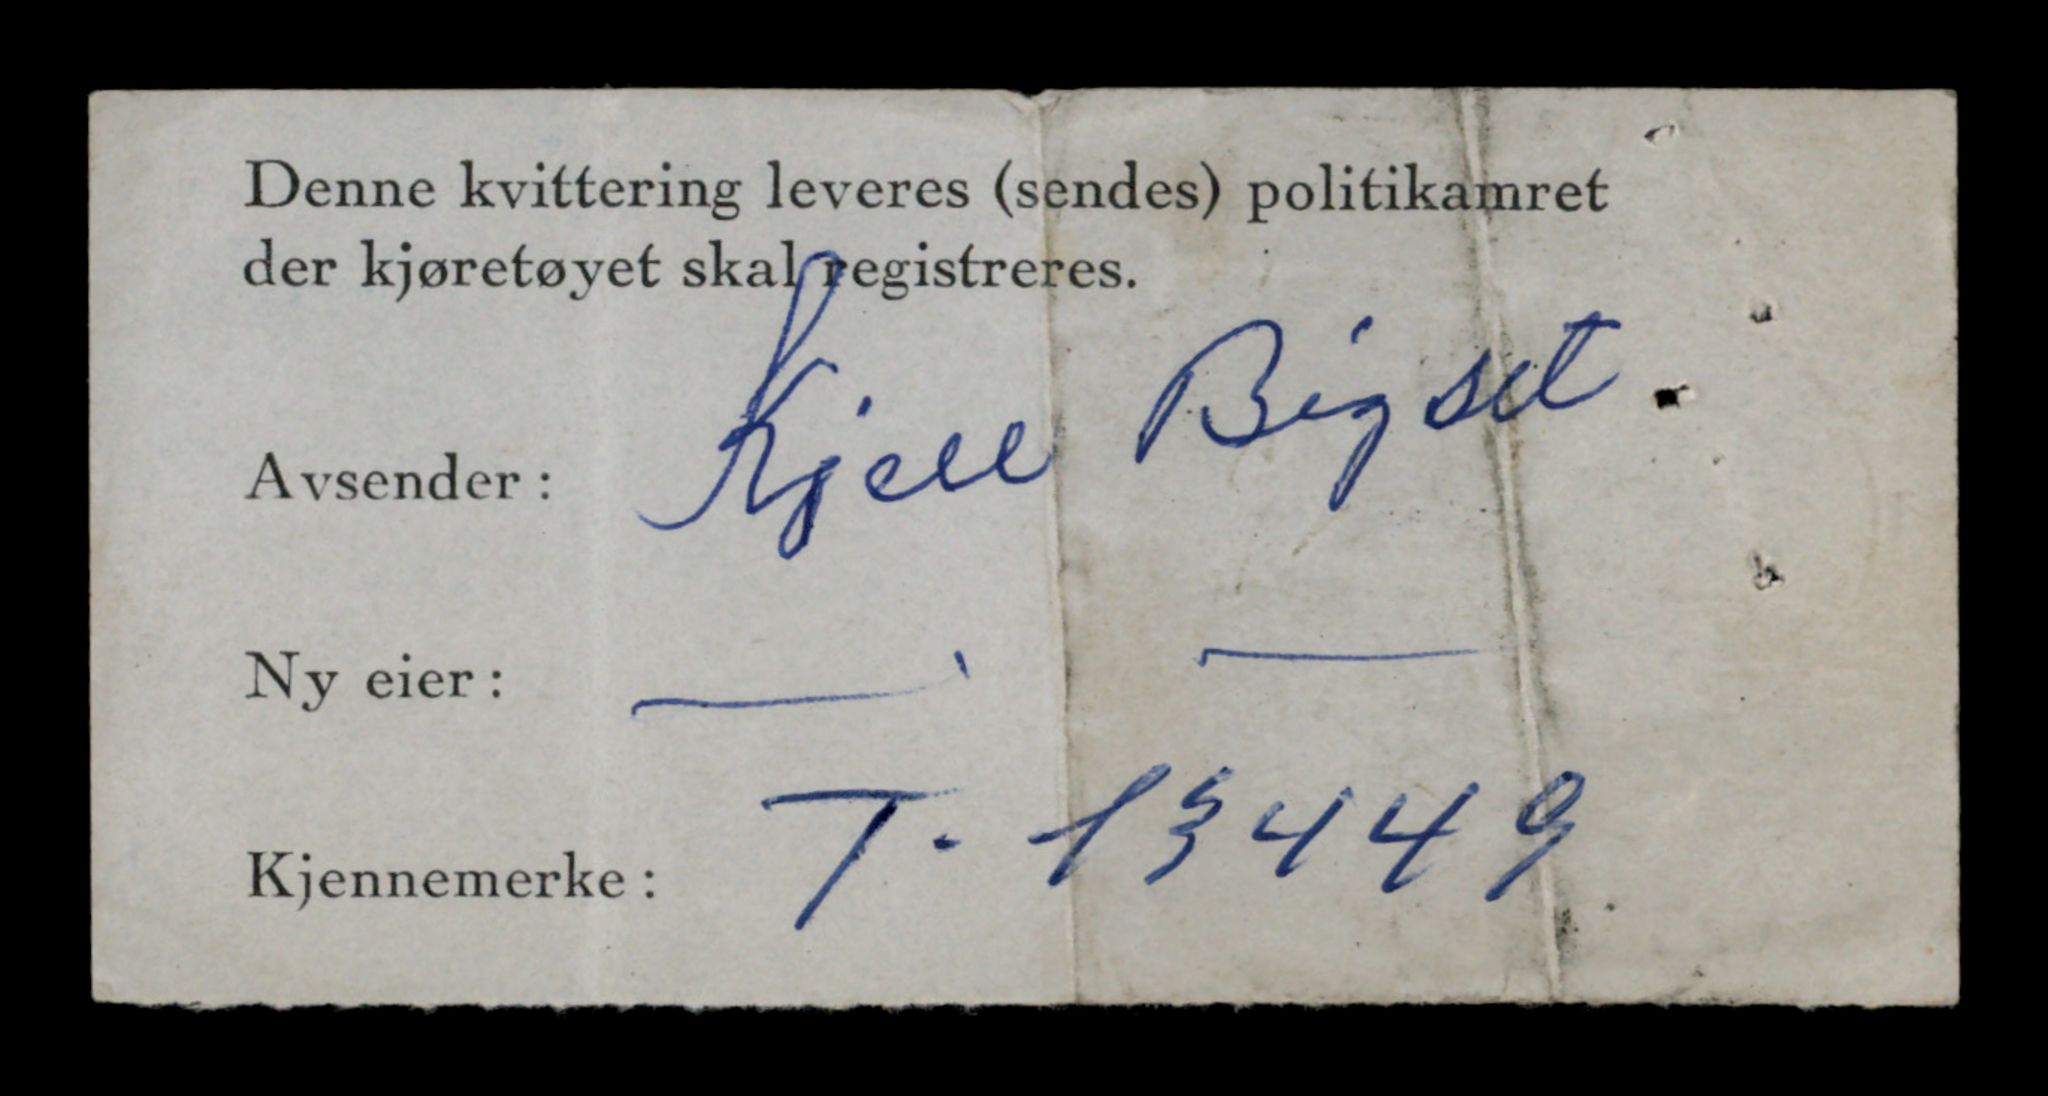 Denne kvittering leveres (sendes) politikamret
der kjøretøyet skal registreres.
Avsender: Kjell Bigset.
Ny eier: — —
Kjennemerke: T. 13449